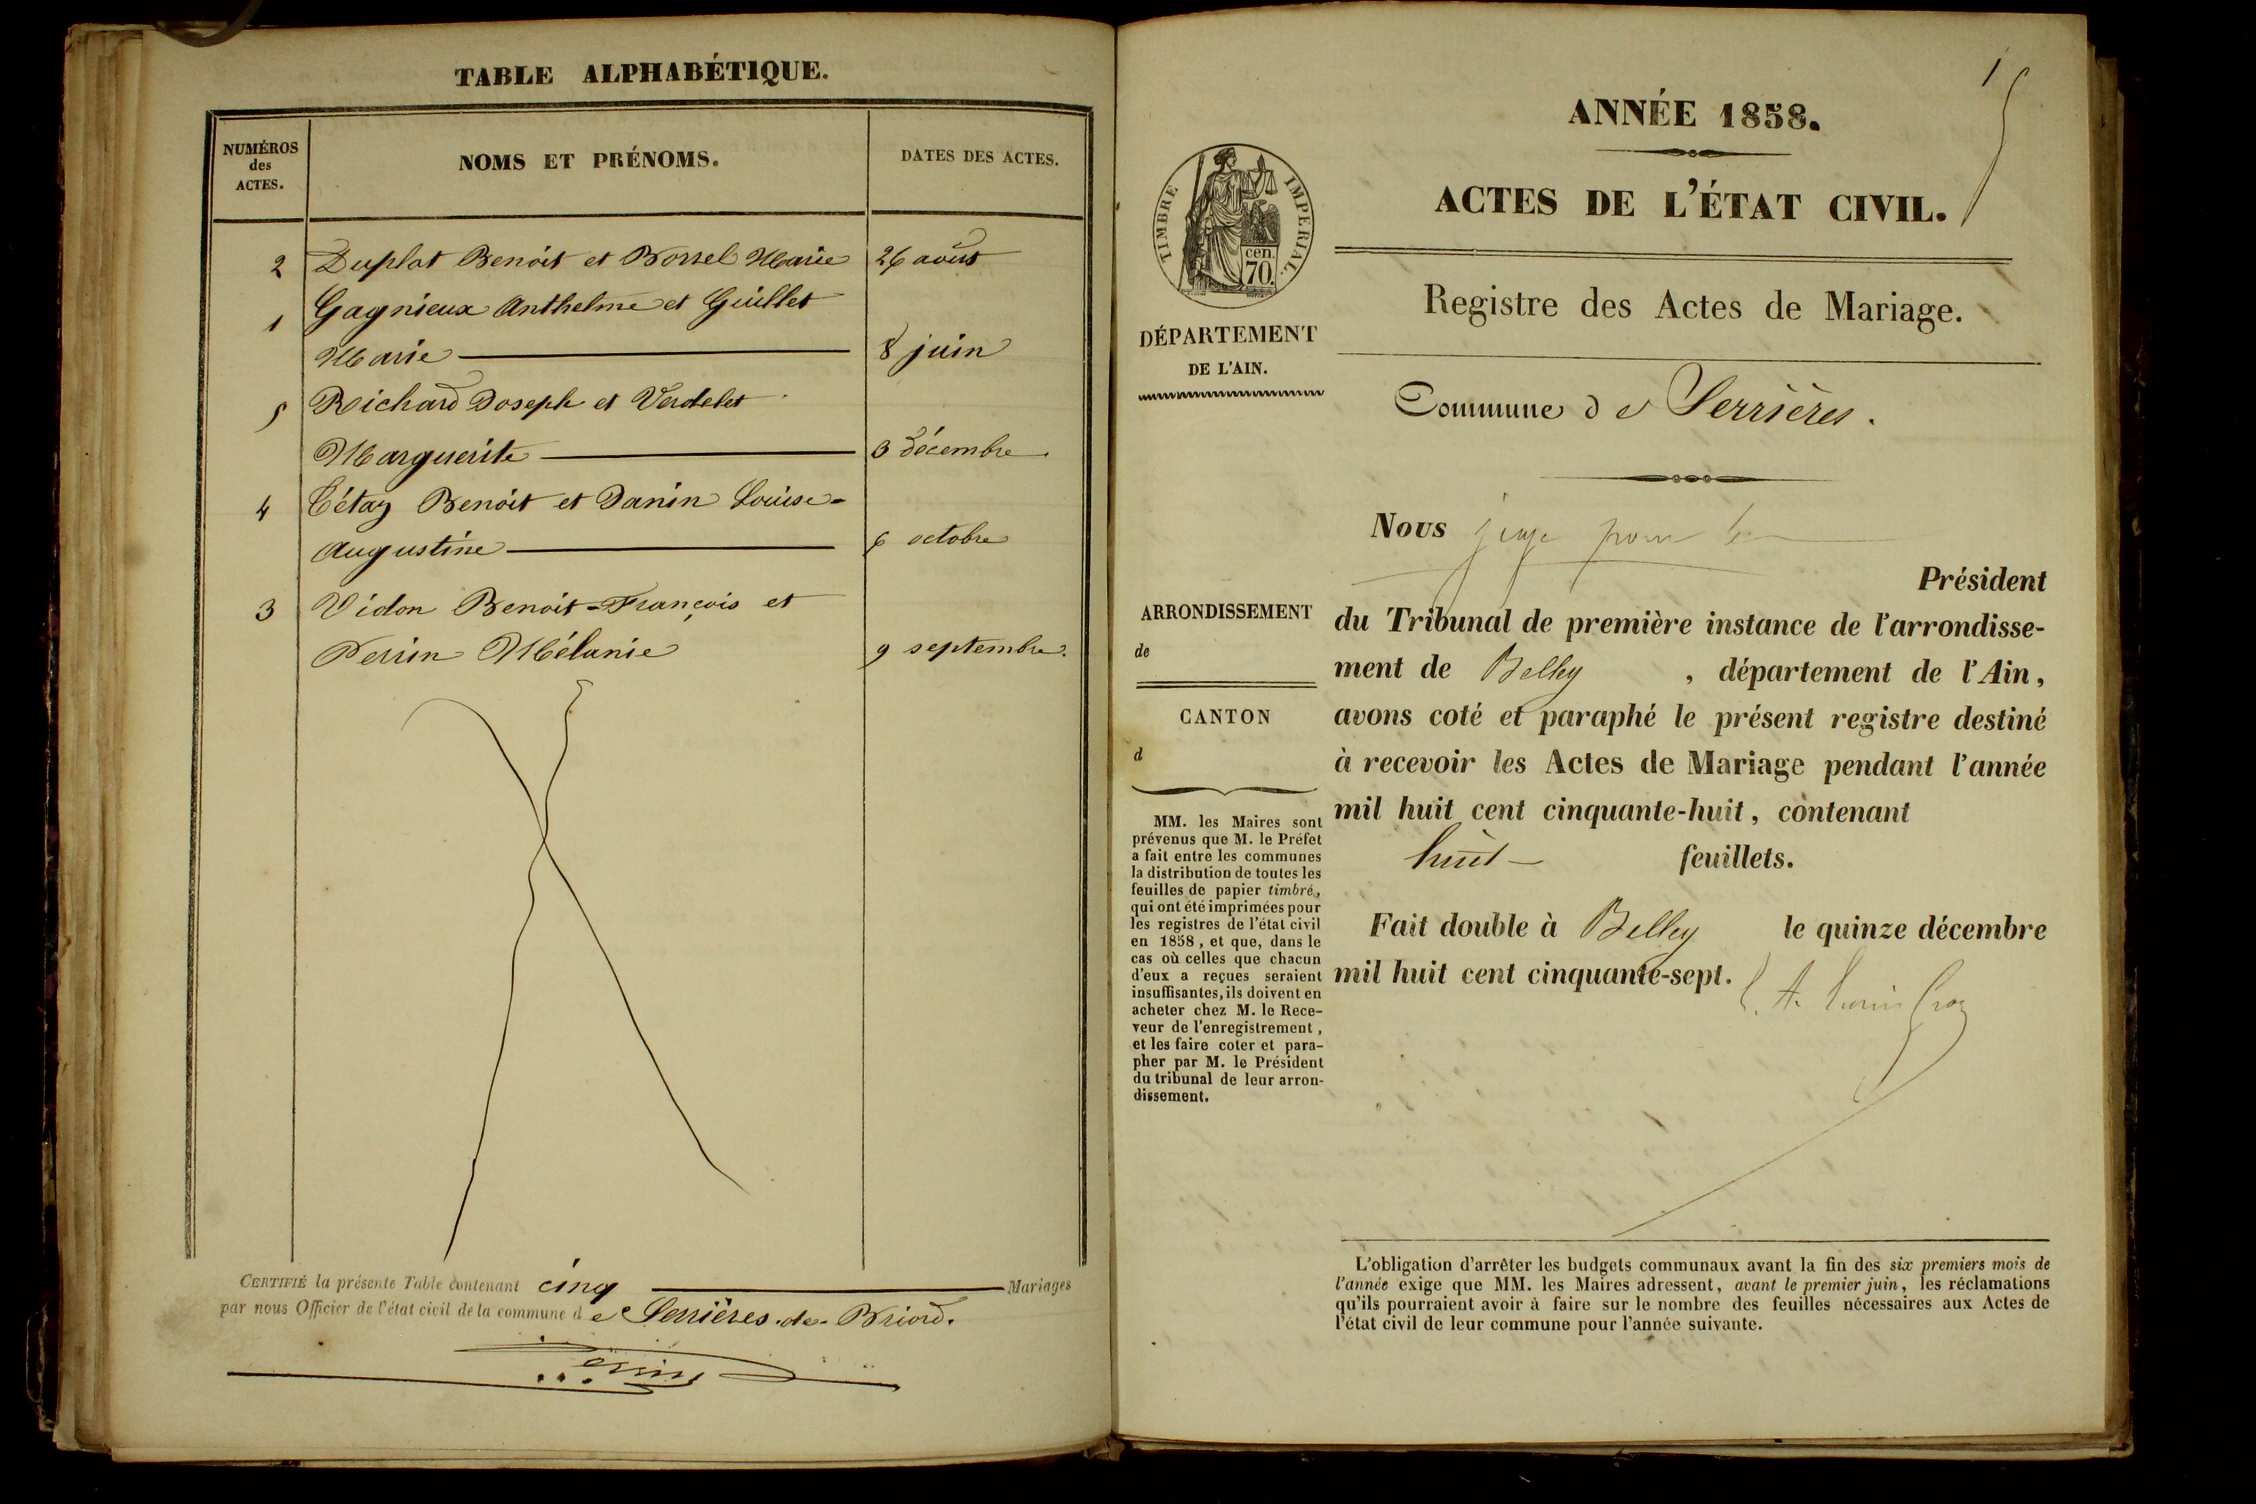 TABLE ALPHABÉTIQUE.
NUMÉROS
des
ACTES.
NOMS ET PRÉNOMS.
DATES DES ACTES.
2 Duplat Benoit et Borrel Marie 26 août
1 Gagnieux Anthelme et Guillet
Marie 8 juin
5 Richard Joseph et Verdelet
Marguerite 3 décembre
4 Tétaz Benoit et Janin Louise-
Augustine 6 octobre
3 Vidon Benoit-François et
Perrin Mélanie 9 septembre.
CERTIFIÉ la présente Table contenant cinq Mariages
par nous Officier de l'état civil de la commune de Serrières-de-Briord.
Perrin
1
ANNÉE 1858.
ACTES DE L'ÉTAT CIVIL.
TIMBRE IMPERIAL.
cen.
70.
DÉPARTEMENT
DE L'AIN.
Registre des Actes de Mariage.
Commune de Serrières.
Nous juge pour le
Président
du Tribunal de première instance de l'arrondisse-
ment de Belley, département de l'Ain,
avons coté et paraphé le présent registre destiné
à recevoir les Actes de Mariage pendant l'année
mil huit cent cinquante-huit, contenant
huit feuillets.
Fait double à Belley le quinze décembre
mil huit cent cinquante-sept.
ARRONDISSEMENT
de
CANTON
d
MM. les Maires sont
prévenus que M. le Préfet
a fait entre les communes
la distribution de toutes les
feuilles de papier timbré,
qui ont été imprimées pour
les registres de l'état civil
en 1858, et que, dans le
cas où celles que chacun
d'eux a reçues seraient
insuffisantes, ils doivent en
acheter chez M. le Rece-
veur de l'enregistrement,
et les faire coter et para-
pher par M. le Président
du tribunal de leur arron-
dissement.
L'obligation d'arrêter les budgets communaux avant la fin des six premiers mois de
l'année exige que MM. les Maires adressent, avant le premier juin, les réclamations
qu'ils pourraient avoir à faire sur le nombre des feuilles nécessaires aux Actes de
l'état civil de leur commune pour l'année suivante.